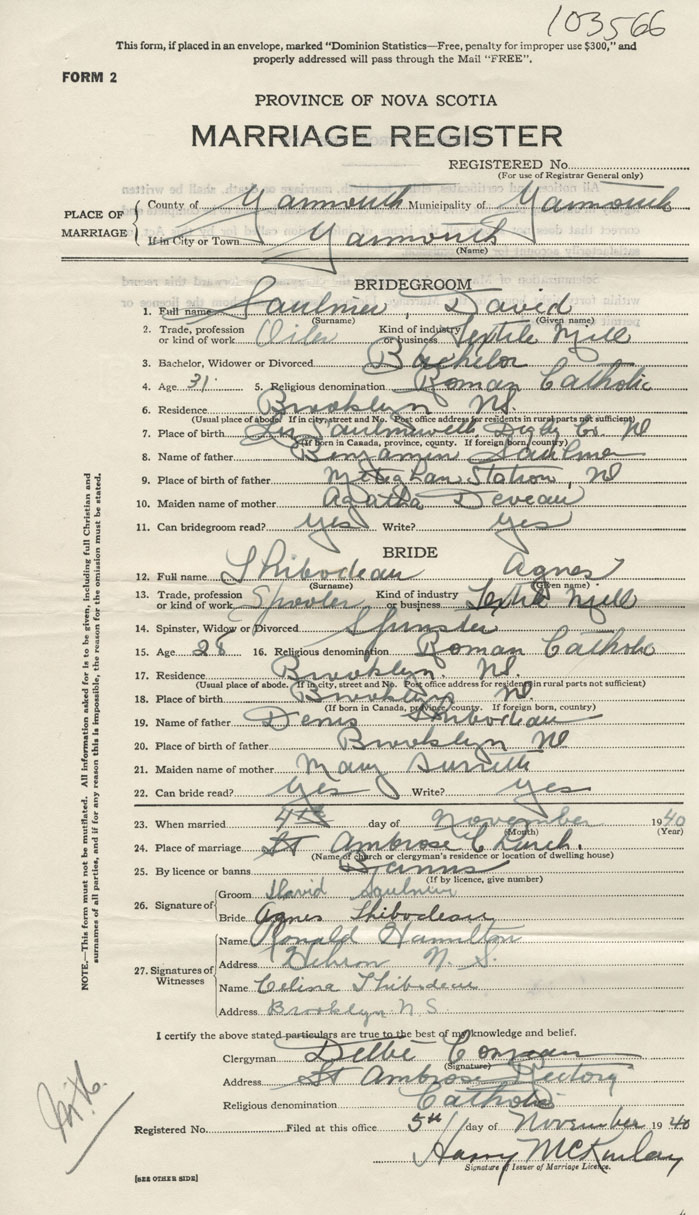 103566
This form, if placed in an envelope, marked "Dominion Statistics—Free, penalty for improper use $300," and
properly addressed will pass through the Mail "FREE".
FORM 2
PROVINCE OF NOVA SCOTIA
MARRIAGE REGISTER
REGISTERED No.
(For use of Registrar General only)
PLACE OF MARRIAGE
County of Yarmouth Municipality of Yarmouth
If in City or Town Yarmouth
(Name)
BRIDEGROOM
1. Full name Saulnier, David
(Surname) (Given name)
2. Trade, profession or kind of work Oiler Kind of industry or business Textile Mill
3. Bachelor, Widower or Divorced Bachelor
4. Age 31 5. Religious denomination Roman Catholic
6. Residence Brooklyn NS
(Usual place of abode. If in city, street and No. Post office address for residents in rural parts not sufficient)
7. Place of birth Saulnierville Digby Co. NS
(If born in Canada, province, county. If foreign born, country)
8. Name of father Benjamin Saulnier
9. Place of birth of father Meteghan Station, NS
10. Maiden name of mother Agatha Deveau
11. Can bridegroom read? yes Write? yes
BRIDE
12. Full name Thibodeau Agnes
(Surname) (Given name)
13. Trade, profession or kind of work Spooler Kind of industry or business Textile Mill
14. Spinster, Widow or Divorced Spinster
15. Age 28 16. Religious denomination Roman Catholic
17. Residence Brooklyn. NS.
(Usual place of abode. If in city, street and No. Post office address for residents in rural parts not sufficient)
18. Place of birth Brooklyn NS.
(If born in Canada, province, county. If foreign born, country)
19. Name of father Denis Thibodeau
20. Place of birth of father Brooklyn NS
21. Maiden name of mother Mary Surrette
22. Can bride read? yes Write? yes
23. When married 4th day of November 1940
(Month) (Year)
24. Place of marriage St Ambrose Church.
(Name of church or clergyman's residence or location of dwelling house)
25. By licence or banns Banns
(If by licence, give number)
26. Signature of
Groom David Saulnier
Bride Agnes Thibodeau
27. Signatures of Witnesses
Name Ronald Hamilton
Address Hebron N. S.
Name Celina Thibodeau
Address Brooklyn N S
I certify the above stated particulars are true to the best of my knowledge and belief.
Clergyman
(Signature)
Address St Ambrose Rectory
Religious denomination Catholic
Registered No. Filed at this office 5th day of November 1940
Harry McKinlay
Signature of Issuer of Marriage Licence.
[SEE OTHER SIDE]
NOTE.—This form must not be mutilated. All information asked for is to be given, including full Christian and
surnames of all parties, and if for any reason this is impossible, the reason for the omission must be stated.